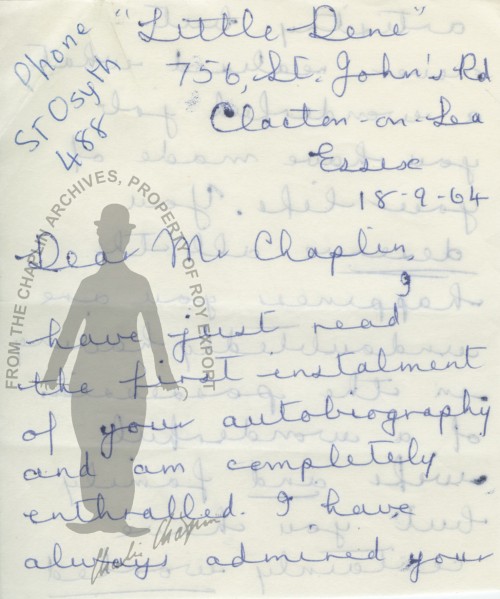 "Little Dene"
Phone
St Osyth
488
756, St. John's Rd
Clacton-on-Sea
Essex
18-9-64
Dear Mr Chaplin,
I
have just read
the first instalment
of your autobiography
and am completely
enthralled. I have
always admired your
FROM THE CHAPLIN ARCHIVES, PROPERTY OF ROY EXPORT
Charlie Chaplin